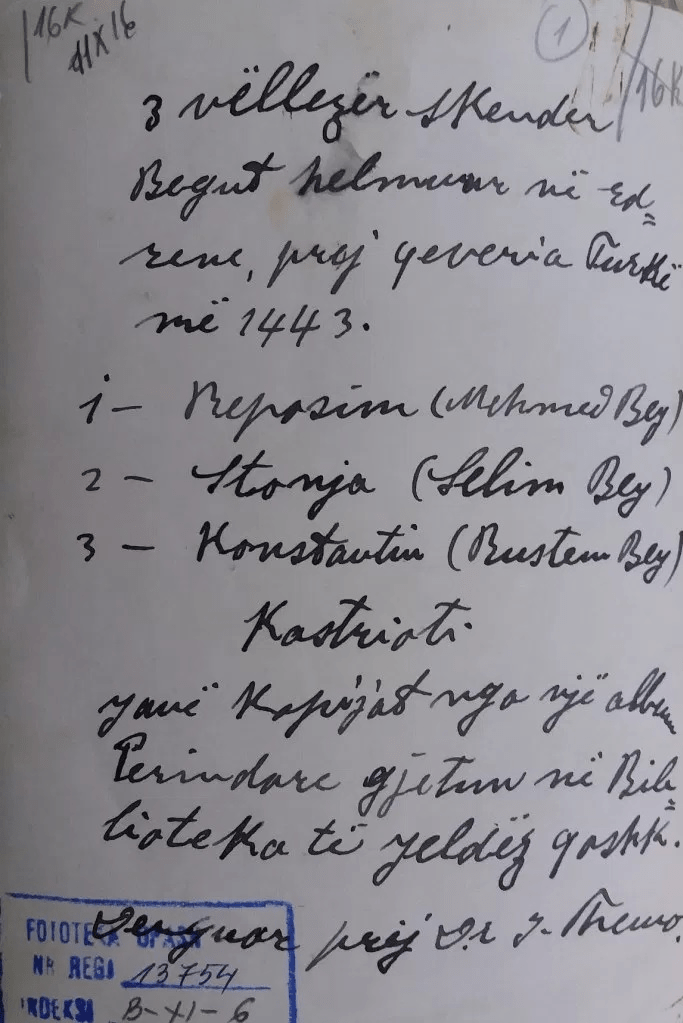 16K
HX16
1
16K
3 vëllezër Skender
Begut helmuar në Ed=
rene, prej qeveria Turkë
më 1443.
1 — Reposim (Mehmed Bey)
2 — Stanja (Selim Bey)
3 — Konstantin (Rustem Bey)
Kastrioti
janë Kopijat nga një album
Perindore gjetun në Bib=
lioteka të Jeldëz qoshk.
Derguar prej Dr I. Themo.
FOTOTEKA
NR REGJ 13754
INDEKSI B-XI-6